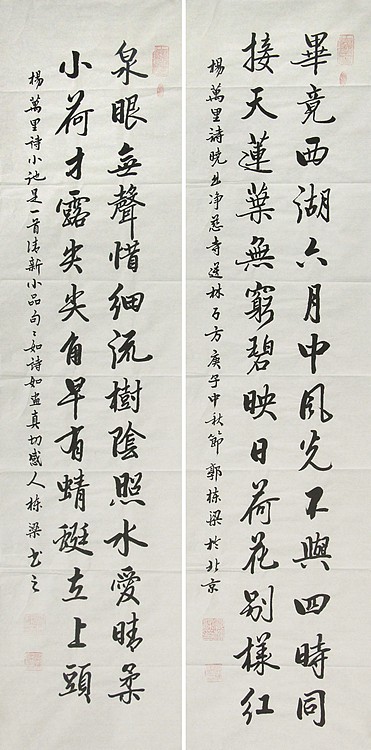 畢竟西湖六月中風光不與四時同
接天蓮葉無窮碧映日荷花别樣紅
楊萬里詩曉出净慈寺送林子方庚子中秋節郭棟梁於北京
泉眼無聲惜細流樹陰照水愛晴柔
小荷才露尖尖角早有蜻蜓立上頭
楊萬里詩小池是一首清新小品句々如詩如畫真切感人棟梁書之